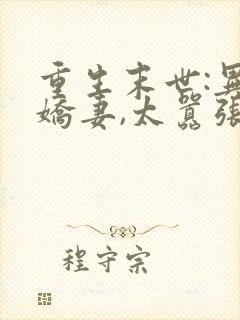 重生末世:
嬌妻,太囂張
程守宗